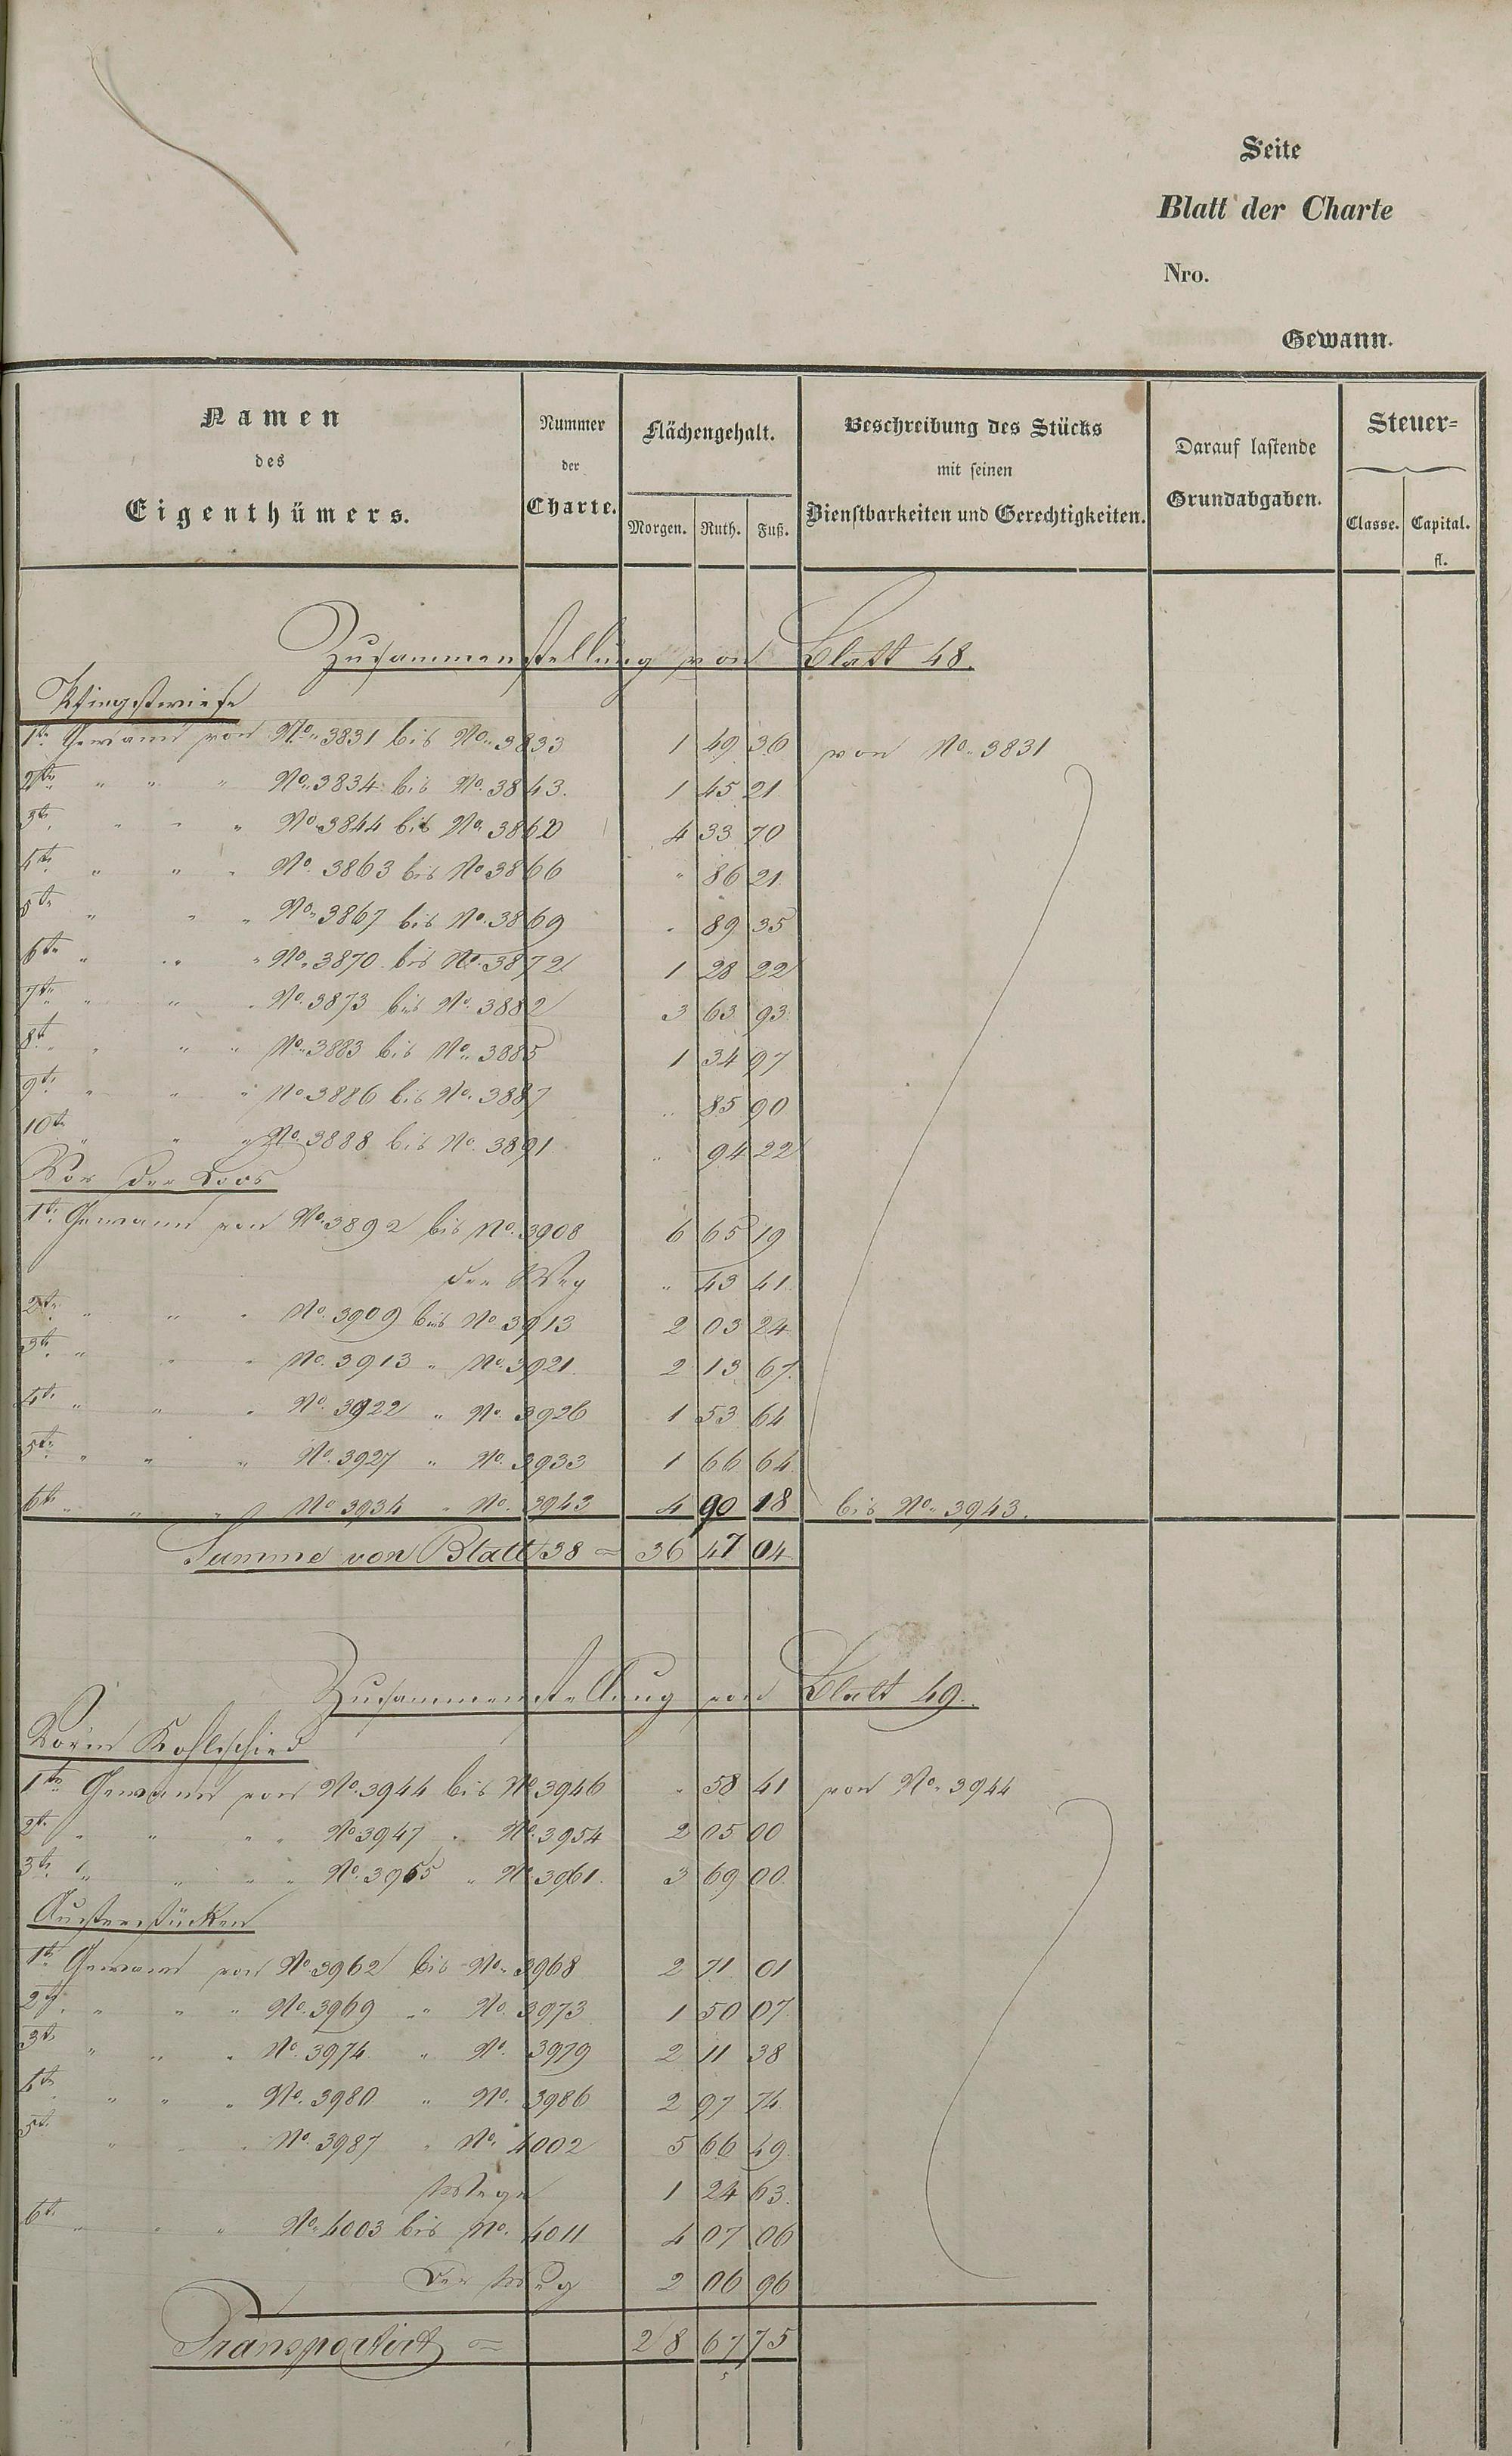 Seite
Blatt der Charte
Nro.
Gewann.
Namen des Eigenthümers.
Nummer der Charte.
Flächengehalt.
Morgen. Ruth. Fuß.
Beschreibung des Stücks mit seinen Dienstbarkeiten und Gerechtigkeiten.
Darauf lastende Grundabgaben.
Steuer=
Classe. Capital.
fl.
Zusammenstellung von Blatt 48.
Pfingstwiese
1te Gewann von No. 3831 bis No. 3833 1 49 36 von No. 3831
2te " " " No. 3834 bis No. 3843. 1 45 21
3te " " " No. 3844 bis No. 3862 4 33 70
4te " " " No. 3863 bis No 3866 " 86 21
5te " " " No. 3867 bis No. 3869 " 89 35
6te " " " No. 3870 bis No. 3872 1 28 22
7te " " " No. 3873 bis No. 3882 3 63 93
8te " " " No. 3883 bis No. 3885 1 34 97
9te " " " No 3886 bis No. 3887 " 85 90
10te " " " No. 3888 bis No. 3891 " 94 22
Vor der Loos
1te Gewann von No. 3892 bis No. 3908 6 65 19
der Weg " 43 41
2te " " " No. 3909 bis No 3913 2 03 24
3te " " " No. 3913 " No. 3921 2 13 67.
4te " " " No. 3922 " No. 3926 1 53 64
5te " " " No. 3927 " No. 3933 1 66 64
6te " " " No 3934 " No. 3943 4 90 18 bis No. 3943.
Summe von Blatt 38 = 36 47 04
Zusammenstellung von Blatt 49.
Vorm Kohlschied
1te Gewann von No. 3944 bis No 3946 " 58 41 von No. 3944
2te " " " " No 3947 " No. 3954 2 05 00
3te " " " " No. 3955 " No 3961. 3 69 00
1te Gewann von No. 3962 bis No. 3968 2 71 01
2te " " " No. 3969 " No. 3973 1 50 07
3te " " " No. 3974 " No. 3979 2 11 38
4te " " " No. 3980 " No. 3986 2 97 74
5te " " " No. 3987 " No. 4002 5 66 49
Wege 1 24 63.
6te " " " No. 4003 bis No. 4011 4 07 06
Der Weg 2 06 96
Transportirt = 28 67 75